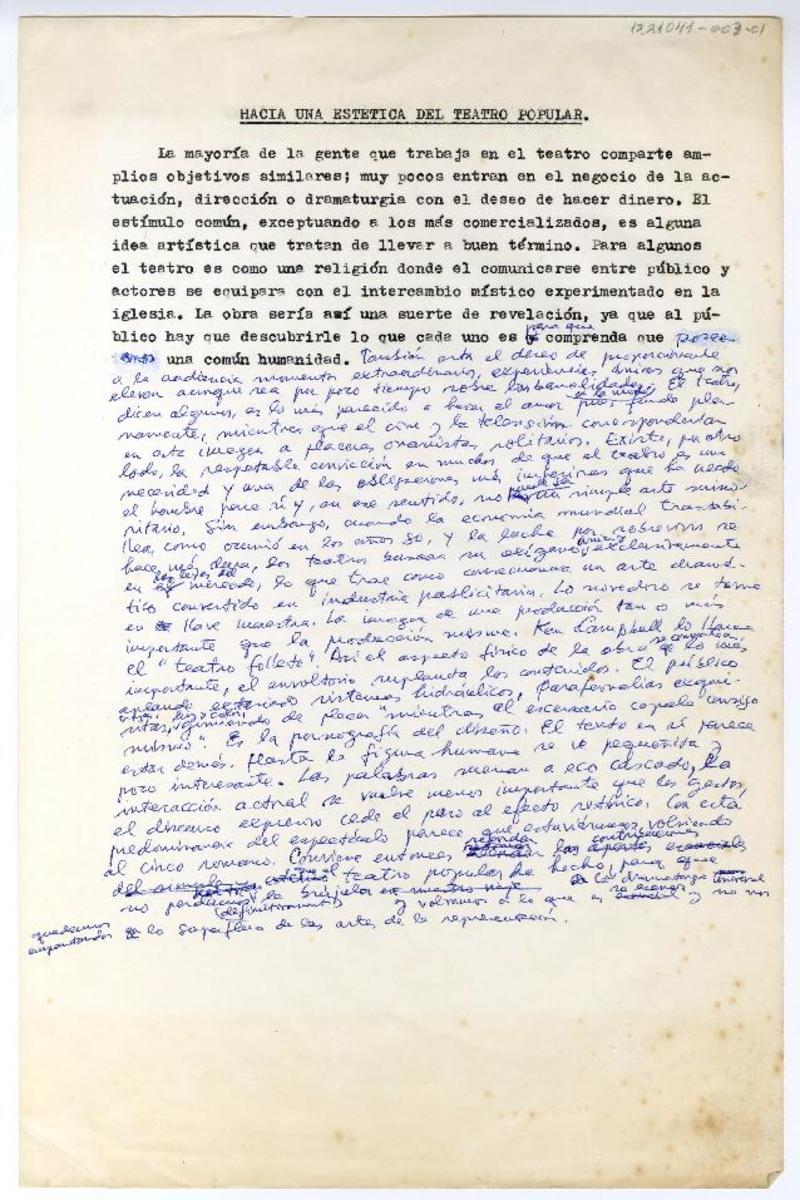 1221041-003-01
HACIA UNA ESTETICA DEL TEATRO POPULAR.
La mayoría de la gente que trabaja en el teatro comparte am-
plios objetivos similares; muy pocos entran en el negocio de la ac-
tuación, dirección o dramaturgia con el deseo de hacer dinero. El
estímulo común, exceptuando a los más comercializados, es alguna
idea artística que tratan de llevar a buen término. Para algunos
el teatro es como una religión donde el comunicarse entre público y
actores se equipara con el intercambio místico experimentado en la
iglesia. La obra sería así una suerte de revelación, ya que al pú-
para que
blico hay que descubrirle lo que cada uno es comprenda que posee-
mos una común humanidad. También está el deseo de proporcionarle
a la audiencia momentos extraordinarios, experiencias únicas que nos
eleven aunque sea por poco tiempo sobre las banalidades. El teatro,
dicen algunos, es lo más parecido a hacer el amor
namente, mientras que el cine y la televisión corresponderían
en esta imagen a placeres onanistas, solitarios. Existe, por otro
lado, la respetable convicción en muchos de que el teatro es una
necesidad y una de las obligaciones más imperiosas que ha usado
el hombre para sí y, en ese sentido, no un simple arte mino-
ritario. Sin embargo, cuando la economía mundial trastabi-
llea, como ocurrió en los años 80, y la lucha por sobrevivir se
hace más dura, los teatros basan su exclusivamente
las leyes del
en mercado, lo que trae como consecuencia un arte dramá-
tico convertido en industria publicitaria. Lo novedoso se torna
en llave maestra. La imagen de una producción tan o más
importante que la producción misma. Ken Campbell lo llama
el "teatro folleto". Así el aspecto físico de la obra se convierte en lo más
importante, el envoltorio suplanta los contenidos. El público
aplaude extasiado sistemas hidráulicos, parafernalias exqui-
sitas, luz y color, gimiendo de placer "mientras el escenario copula consigo
mismo". Es la pornografía del diseño. El texto en sí parece
estar demás. Hasta la figura humana se ve pequeñita y
poco interesante. Las palabras suenan a eco cascado, la
interacción actoral se vuelve menos importante que los gestos,
el discurso expresivo cede el paso al efecto retórico. Con esta
predominancia del espectáculo parece que estuviéramos volviendo
al circo romano. Conviene entonces contribuciones
teatro popular ha hecho, para que
no perdamos la brújula
y volvamos a lo que es y no nos
quedemos
empantanados en lo superfluo de las artes de la representación.